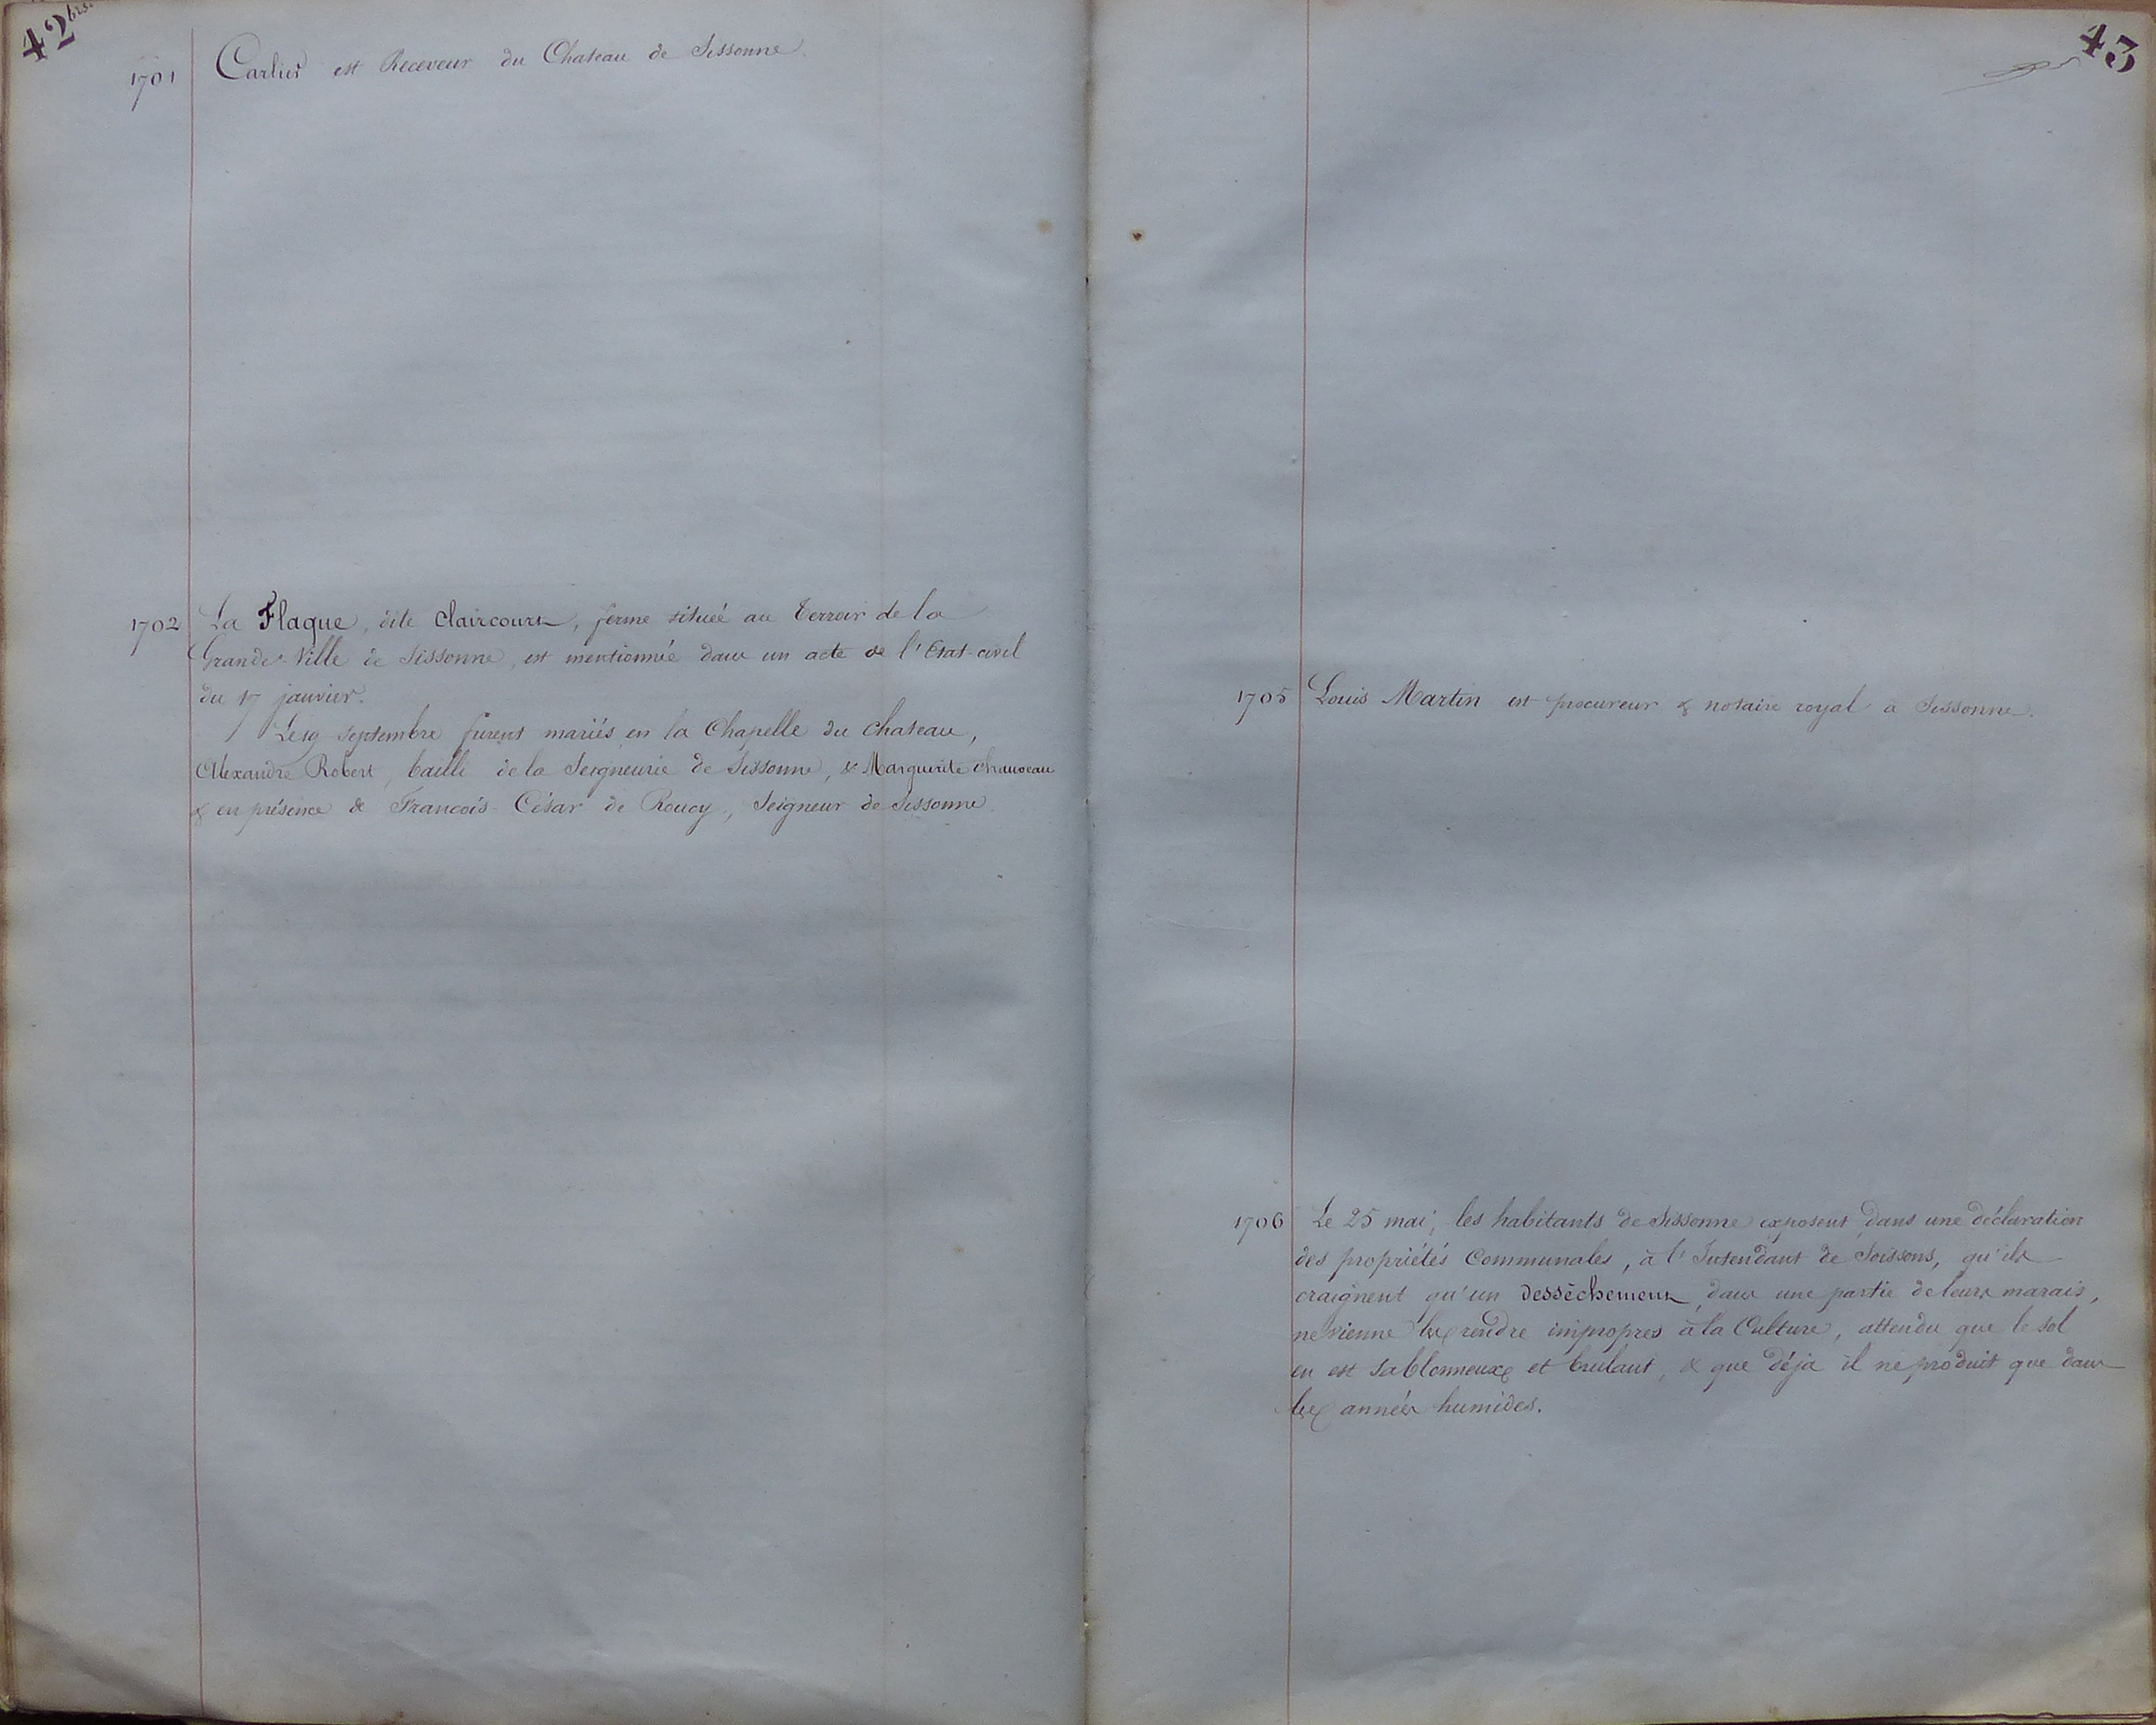 42 bis.
1701 Carlier est Receveur du Chateau de Sissonne.
1702 La Flaque, dite Claircourt, ferme située au Terroir de la
Grande-Ville de Sissonne, est mentionnée dans un acte de l'Etat-civil
du 17 janvier.
Le 19 septembre furent mariés en la Chapelle du Chateau,
Alexandre Robert, bailli de la Seigneurie de Sissonne, & Marguerite Chauveau
& en présence de Francois-César de Roucy, Seigneur de Sissonne.
43
1705 Louis Martin est procureur & notaire royal à Sissonne.
1706 Le 25 mai, les habitants de Sissonne exposent dans une déclaration
des propriétés Communales, à l'Intendant de Soissons, qu'ils
craignent qu'un dessèchement, dans une partie de leurs marais,
ne vienne les rendre impropres à la Culture, attendu que le sol
en est sablonneux et brulant, & que déjà il ne produit que dans
les années humides.